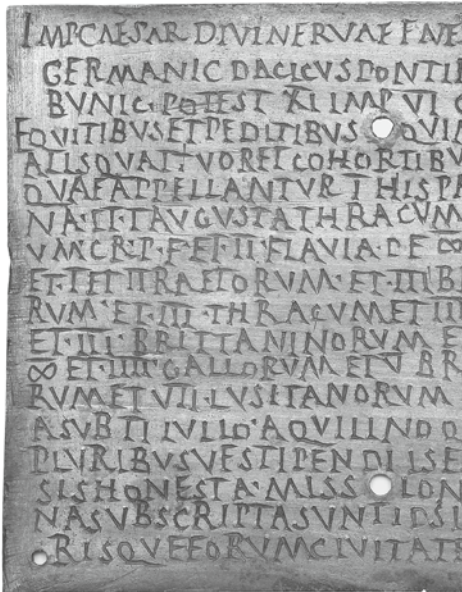 IMP CAESAR DIVI NERVAE F NE
GERMANIC DACICVS PONTIF
BVNIC·POTEST XI IMP VI C
EQVITIBVS ET PEDITIBVS QVI
ALIS QVATTVOR ET COHORTIBV
QVAE APPELLANTVR I HISPA
NA·ET·I AVGVSTA THRACVM
VM·C·R·P·F·ET·II·FLAVIA·P·F ∞
ET·I·ET II RAETORVM·ET·III BR
RVM·ET·III·THRACVM ET III
ET·III·BRITTANINORVM E
∞ ET·IIII·GALLORVM ET V BR
RVM ET VII·LVSITANORVM
A SVB TI IVLIO·AQVILINO Q
PLVRIBVSVE STIPENDIIS E
SIS HONESTA·MISS ION
NA SVBSCRIPTA SVNT IPSI
RISQVE EORVM CIVITATE